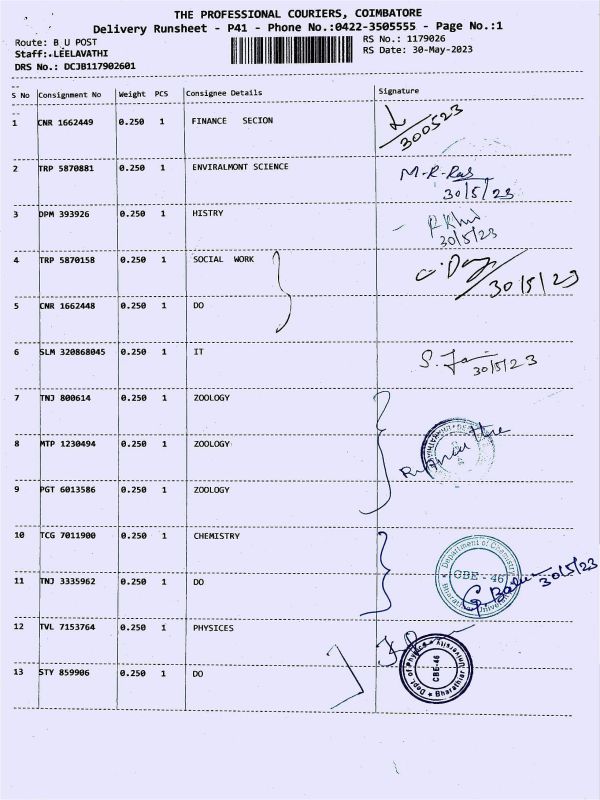 THE PROFESSIONAL COURIERS, COIMBATORE
Delivery Runsheet - P41 - Phone No.:0422-3505555 - Page No.:1
Route: B U POST
RS No.: 1179026
Staff: LEELAVATHI
RS Date: 30-May-2023
DRS No.: DCJB117902601
S No Consignment No Weight PCS Consignee Details Signature
1 CNR 1662449 0.250 1 FINANCE SECION
300523
2 TRP 5870881 0.250 1 ENVIRALMONT SCIENCE M-R-
30/5/23
3 DPM 393926 0.250 1 HISTRY
30/5/23
4 TRP 5870158 0.250 1 SOCIAL WORK
30/5/23
5 CNR 1662448 0.250 1 DO
6 SLM 320868045 0.250 1 IT S.
30/5/23
7 TNJ 800614 0.250 1 ZOOLOGY
8 MTP 1230494 0.250 1 ZOOLOGY
9 PGT 6013586 0.250 1 ZOOLOGY
10 TCG 7011900 0.250 1 CHEMISTRY
Department of Chemistry
CBE - 46
Bharathiar University
30/5/23
11 TNJ 3335962 0.250 1 DO
12 TVL 7153764 0.250 1 PHYSICES
13 STY 859906 0.250 1 DO
Dept. of Physics
CBE-46
Bharathiar University